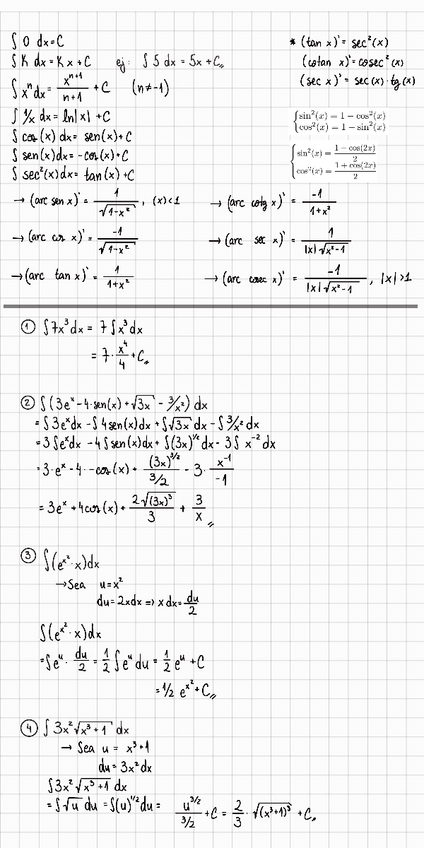 ∫ 0 dx = C
∫ K dx = K x + C   ej: ∫ 5 dx = 5x + C
∫ xⁿ dx = xⁿ⁺¹/(n+1) + C   (n ≠ -1)
∫ 1/x dx = ln|x| + C
∫ cos(x) dx = sen(x) + C
∫ sen(x) dx = -cos(x) + C
∫ sec²(x) dx = tan(x) + C
* (tan x)' = sec²(x)
(cotan x)' = cosec²(x)
(sec x)' = sec(x)·tg(x)
{ sin²(x) = 1 − cos²(x)
cos²(x) = 1 − sin²(x)
{ sin²(x) = (1 − cos(2x))/2
cos²(x) = (1 + cos(2x))/2
→ (arc sen x)' = 1/√(1-x²), (x) < 1   → (arc cotg x)' = -1/(1+x²)
→ (arc cos x)' = -1/√(1-x²)   → (arc sec x)' = 1/(|x|√(x²-1))
→ (arc tan x)' = 1/(1+x²)   → (arc cosec x)' = -1/(|x|√(x²-1)), |x| > 1
① ∫ 7x³ dx = 7 ∫ x³ dx
= 7 · x⁴/4 + C
② ∫ (3eˣ - 4·sen(x) + √3x - 3/x²) dx
= ∫ 3eˣ dx - ∫ 4sen(x) dx + ∫ √3x dx - ∫ 3/x² dx
= 3 ∫ eˣ dx - 4 ∫ sen(x) dx + ∫ (3x)^1/2 dx - 3 ∫ x⁻² dx
= 3·eˣ - 4 · -cos(x) + (3x)^3/2/(3/2) - 3 · x⁻¹/-1
= 3eˣ + 4cos(x) + 2√(3x)³/3 + 3/x
③ ∫ (e^x² · x) dx
→ Sea u = x²
du = 2x dx => x dx = du/2
∫ (e^x² · x) dx
= ∫ eᵘ · du/2 = 1/2 ∫ eᵘ du = 1/2 eᵘ + C
= 1/2 e^x² + C
④ ∫ 3x² √(x³+1) dx
→ Sea u = x³+1
du = 3x² dx
∫ 3x² √(x³+1) dx
= ∫ √u du = ∫ (u)^1/2 du = u^3/2/(3/2) + C = 2/3 · √(x³+1)³ + C